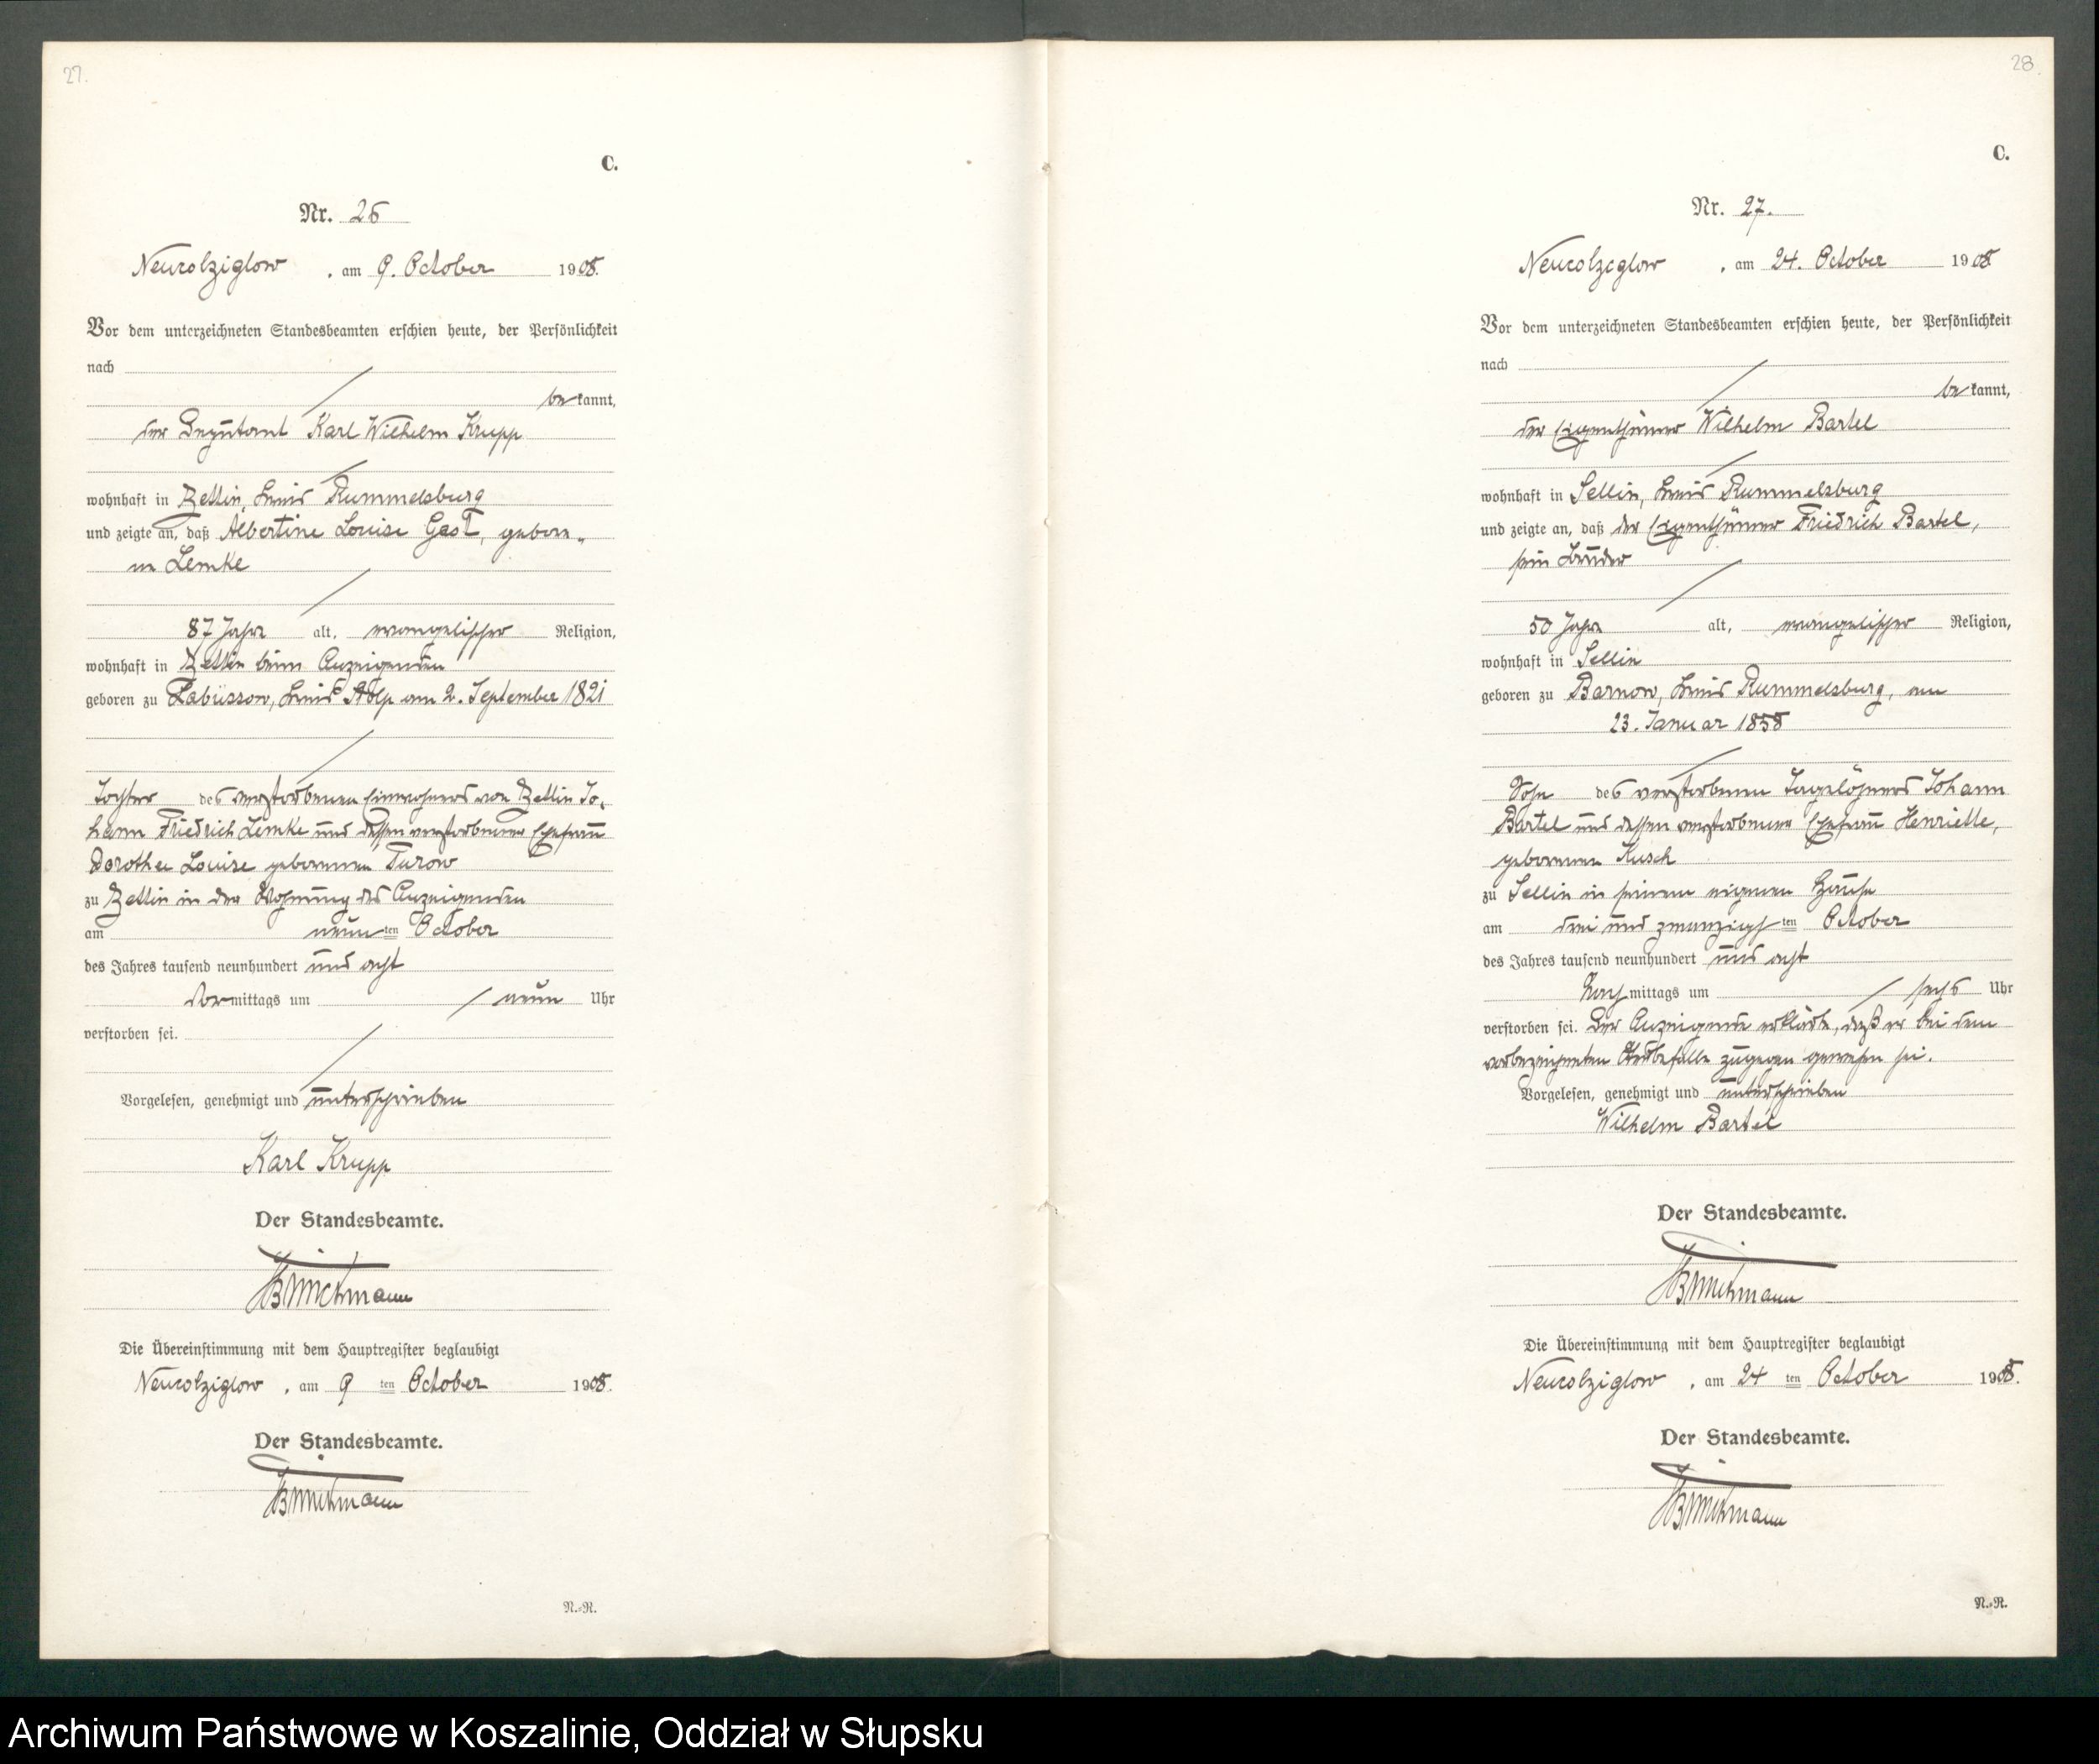 27.
C.
Nr. 26
Neukolziglow, am 9. October 1908.
Vor dem unterzeichneten Standesbeamten erschien heute, der Persönlichkeit
nach
be kannt,
der Deputant Karl Wilhelm Krupp
wohnhaft in Zettin, Kreis Rummelsburg
und zeigte an, daß Albertine Louise Gast, gebore„
ne Lemke
87 Jahre alt, evangelischer Religion,
wohnhaft in Zettin beim Anzeigenden
geboren zu Labüssow, Kreis Stolp am 2. September 1821
Tochter des verstorbenen Einwohners von Zettin Jo„
hann Friedrich Lemke und dessen verstorbener Ehefrau
Dorothee Louise geborenen Turow
zu Zettin in der Wohnung des Anzeigenden
am neun ten October
des Jahres tausend neunhundert und acht
Vor mittags um neun Uhr
verstorben sei.
Vorgelesen, genehmigt und unterschrieben
Karl Krupp
Der Standesbeamte.
Die Übereinstimmung mit dem Hauptregister beglaubigt
Neukolziglow, am 9 ten October 1908.
Der Standesbeamte.
N.-R.
28.
C.
Nr. 27.
Neukolziglow, am 24. October 1908
Vor dem unterzeichneten Standesbeamten erschien heute, der Persönlichkeit
nach
be kannt,
der Eigenthümer Wilhelm Bartel
wohnhaft in Sellin, Kreis Rummelsburg
und zeigte an, daß der Eigenthümer Friedrich Bartel,
sein Bruder
50 Jahre alt, evangelischer Religion,
wohnhaft in Sellin
geboren zu Barnow, Kreis Rummelsburg, am
23. Januar 1858
Sohn des verstorbenen Tagelöhners Johann
Bartel und dessen verstorbener Ehefrau Henriette,
geborenen Kusch
zu Sellin in seinem eigenen Hause
am drei und zwanzigs ten October
des Jahres tausend neunhundert und acht
Nach mittags um sechs Uhr
verstorben sei. Der Anzeigende erklärte, daß er bei dem
vorbezeichneten Sterbefalle zugegen gewesen sei.
Vorgelesen, genehmigt und unterschrieben
Wilhelm Bartel
Der Standesbeamte.
Die Übereinstimmung mit dem Hauptregister beglaubigt
Neukolziglow, am 24 ten October 1908.
Der Standesbeamte.
N.-R.
Archiwum Państwowe w Koszalinie, Oddział w Słupsku